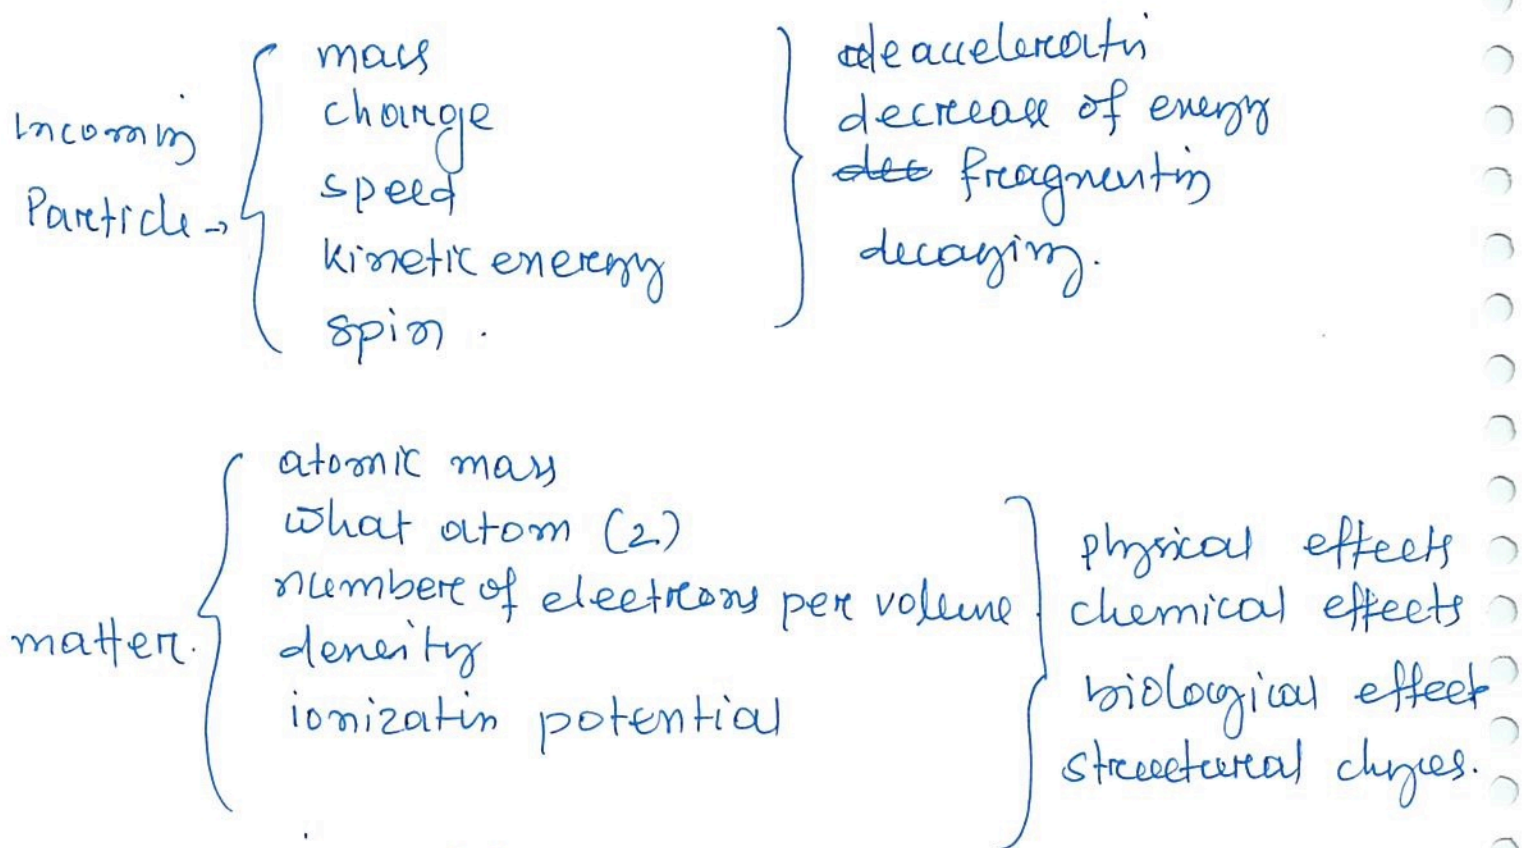 Incoming
Particle →
mass
charge
speed
kinetic energy
spin .
deacceleration
decrease of energy
fragmentin
decaying.
matter.
atomic mass
what atom (2)
number of electrons per volume
density
ionizatin potential
physical effects
chemical effects
biological effect
structural changes.